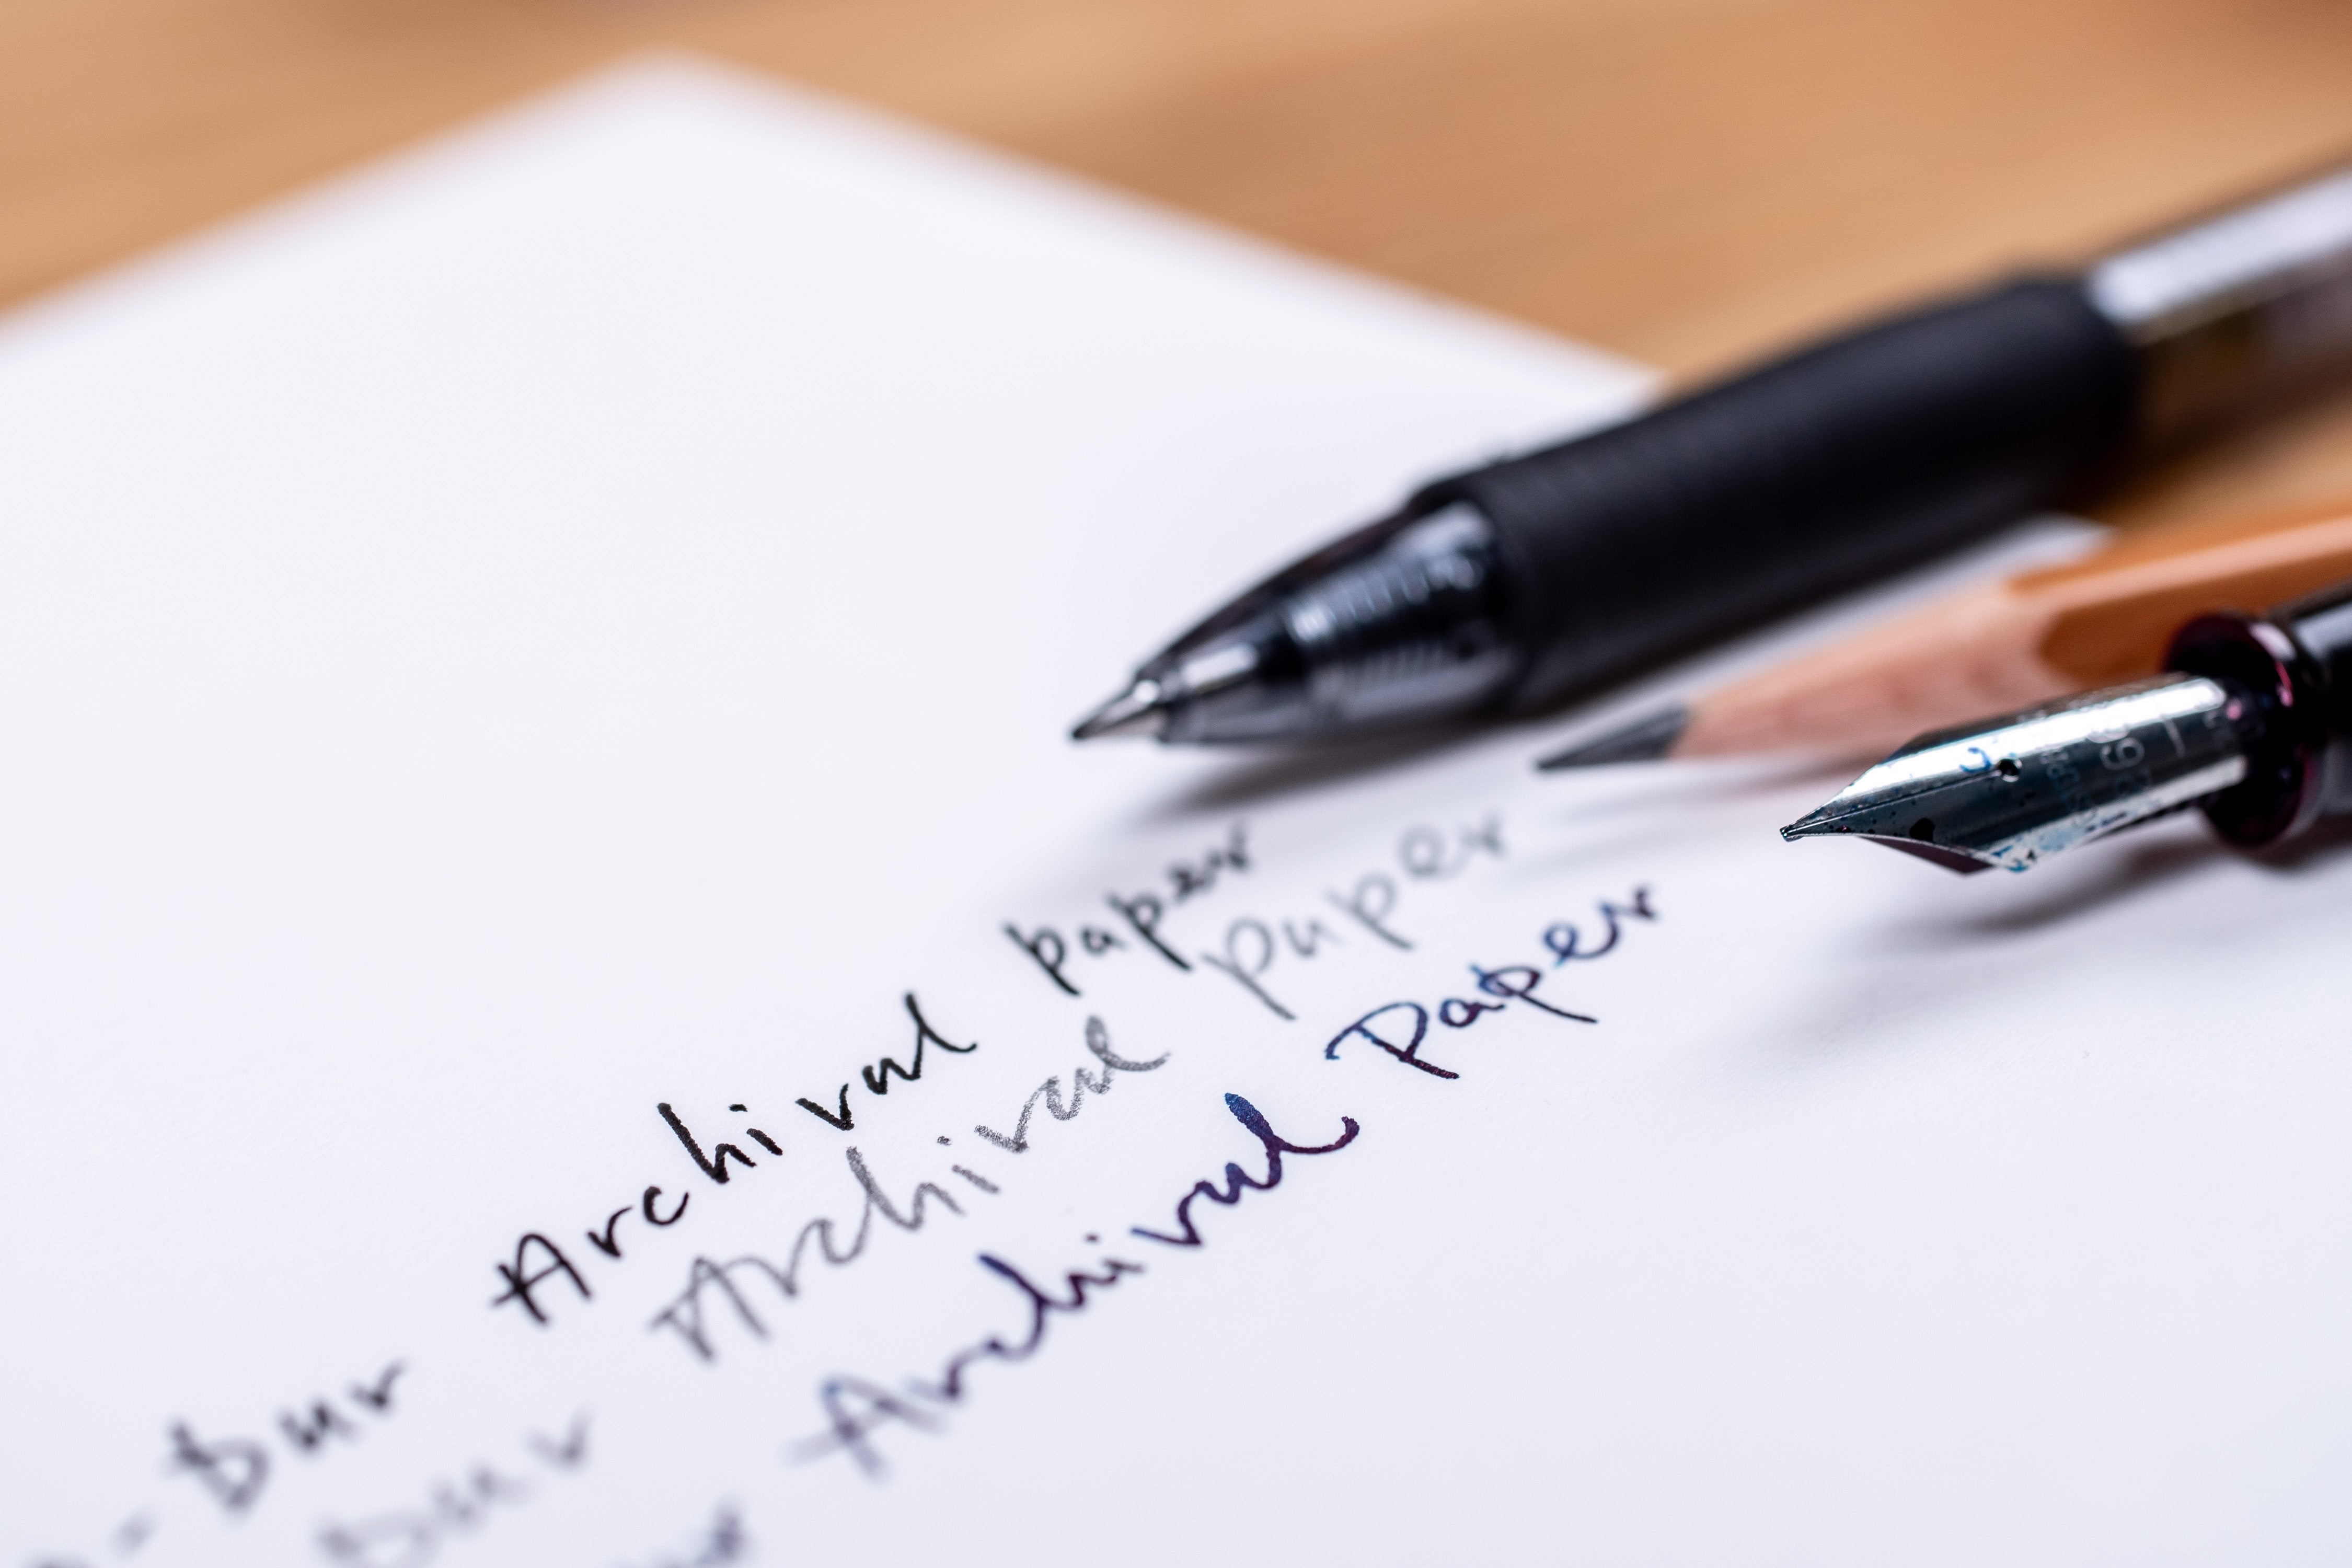 - Dur Archival paper
Dur Archival paper
Archival Paper